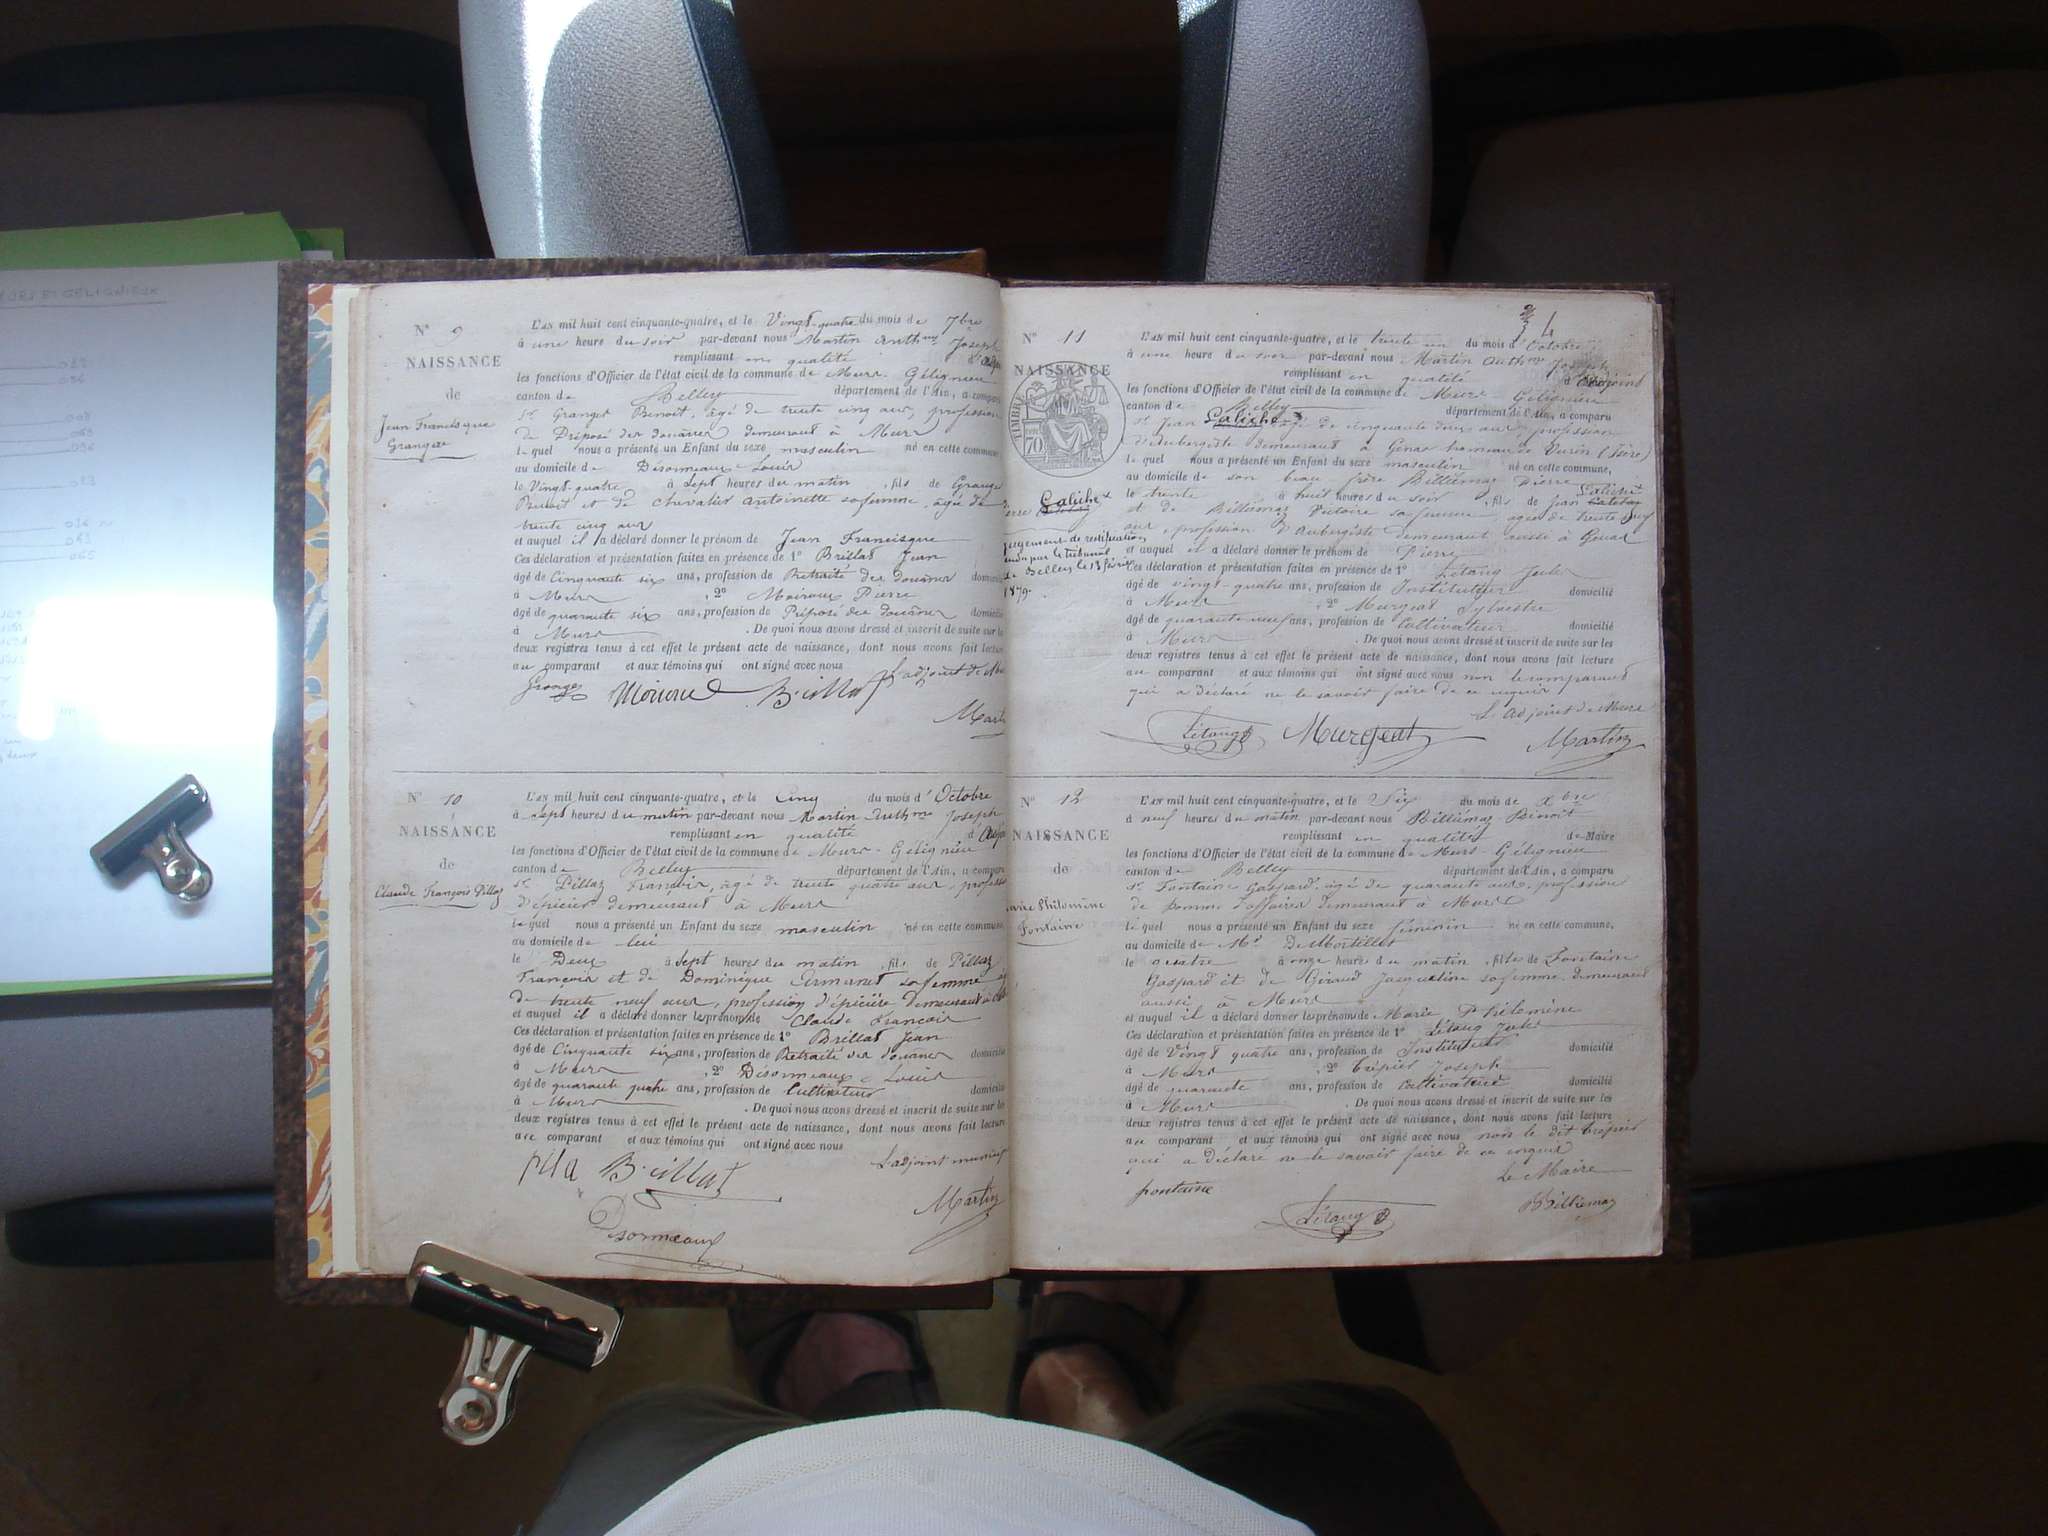 MURS ET GELIGNIEUX
Nº 9
NAISSANCE
de
Jean Francisque
Granger
L'AN mil huit cent cinquante-quatre, et le Vingt-quatre du mois de 7bre
à une heure du soir par-devant nous Martin Anthme Joseph
remplissant en qualité d'
les fonctions d'Officier de l'état civil de la commune de Murs-Gélignieu
canton de Belley département de l'Ain, a comparu
Sr Granger Benoit, âgé de trente cinq ans, profession
de Préposé des douânes demeurant à Murs
lequel nous a présenté un Enfant du sexe masculin né en cette commune
au domicile de Désormeaux Louis
le Vingt-quatre à Sept heures du matin, fils de Granger
Benoit et de Chevalier Antoinette sa femme, agée de
trente cinq ans
et auquel il a déclaré donner le prénom de Jean Francisque
Ces déclaration et présentation faites en présence de 1º Brillat Jean
âgé de Cinquante six ans, profession de Retraité des douânes domicilié
à Murs, 2º Pierre
âgé de quarante six ans, profession de Préposé des douânes domicilié
à Murs. De quoi nous avons dressé et inscrit de suite sur les
deux registres tenus à cet effet le présent acte de naissance, dont nous avons fait lecture
au comparant et aux témoins qui ont signé avec nous
L'adjoint de
Granger Brillat
Martin
Nº 10
NAISSANCE
de
Claude François Pillaz
L'AN mil huit cent cinquante-quatre, et le Cinq du mois d'Octobre
à Sept heures du matin par-devant nous Martin Anthme Joseph
remplissant en qualité d'
les fonctions d'Officier de l'état civil de la commune de Murs-Gélignieu
canton de Belley département de l'Ain, a comparu
Sr Pillaz François, âgé de trente quatre ans, profession
D'épicier demeurant à Murs
lequel nous a présenté un Enfant du sexe masculin né en cette commune,
au domicile de lui
le Deux à Sept heures du matin, fils de Pillaz
François et de Dominique Armanet sa femme
de trente neuf ans, profession d'épicière demeurant à
et auquel il a déclaré donner les prénoms de Claude François
Ces déclaration et présentation faites en présence de 1º Brillat Jean
âgé de Cinquante six ans, profession de Retraité des douanes domicilié
à Murs, 2º Désormeaux Louis
âgé de quarante quatre ans, profession de Cultivateur domicilié
à Murs. De quoi nous avons dressé et inscrit de suite sur les
deux registres tenus à cet effet le présent acte de naissance, dont nous avons fait lecture
au comparant et aux témoins qui ont signé avec nous
L'adjoint
Brillat
Martin
Desormeaux
4
Nº 11
NAISSANCE
TIMBRE
70
Galiche
Jugement de rectification
rendu par le tribunal
de Belley le 13
1879.
L'AN mil huit cent cinquante-quatre, et le trente un du mois d'Octobre
à une heure du soir par-devant nous Martin Anthme Joseph
remplissant en qualité d'adjoint
les fonctions d'Officier de l'état civil de la commune de Murs Gélignieu
canton de Belley département de l'Ain, a comparu
Sr Jean Galiche âgé de cinquante deux ans profession
d'Aubergiste demeurant à Genas hameau de (Isère)
lequel nous a présenté un Enfant du sexe masculin né en cette commune,
au domicile de son beau frère Billiémaz Pierre
le trente à huit heures du soir, fils de Jean Galiche
et de Billiémaz Victoire sa femme agée de trente neuf
ans, profession d'Aubergiste demeurant aussi à Genas
et auquel il a déclaré donner le prénom de Pierre
Ces déclaration et présentation faites en présence de 1º Létang Jules
âgé de vingt-quatre ans, profession de Instituteur domicilié
à Murs, 2º Murgeat Sylvestre
âgé de quarante neuf ans, profession de Cultivateur domicilié
à Murs. De quoi nous avons dressé et inscrit de suite sur les
deux registres tenus à cet effet le présent acte de naissance, dont nous avons fait lecture
au comparant et aux témoins qui ont signé avec nous non le comparant
qui a déclaré ne le savoir faire de ce requis
L'adjoint de Murs
Létang Murgeat Martin
Nº 12
NAISSANCE
de
Marie Philomène
Fontaine
L'AN mil huit cent cinquante-quatre, et le Six du mois de Xbre
à neuf heures du matin par-devant nous Billiémaz Benoit
remplissant en qualités de Maire
les fonctions d'Officier de l'état civil de la commune de Murs-Gélignieu
canton de Belley département de l'Ain, a comparu
Sr Fontaine Gaspard, âgé de quarante ans, profession
de homme d'affaires demeurant à Murs
lequel nous a présenté un Enfant du sexe féminin né en cette commune,
au domicile de Mr De Mortillet
le quatre à onze heures du matin, filles de Fontaine
Gaspard et de Giraud Jacqueline sa femme demeurant
aussi à Murs
et auquel il a déclaré donner les prénoms de Marie Philomène
Ces déclaration et présentation faites en présence de 1º Létang Jules
âgé de Vingt quatre ans, profession de Instituteur domicilié
à Murs, 2º Trépier Joseph
âgé de quarante ans, profession de Cultivateur domicilié
à Murs. De quoi nous avons dressé et inscrit de suite sur les
deux registres tenus à cet effet le présent acte de naissance, dont nous avons fait lecture
au comparant et aux témoins qui ont signé avec nous non le dit Trépier
qui a déclaré ne le savoir faire de ce requis
Le Maire
fontaine
Létang
Billiemaz